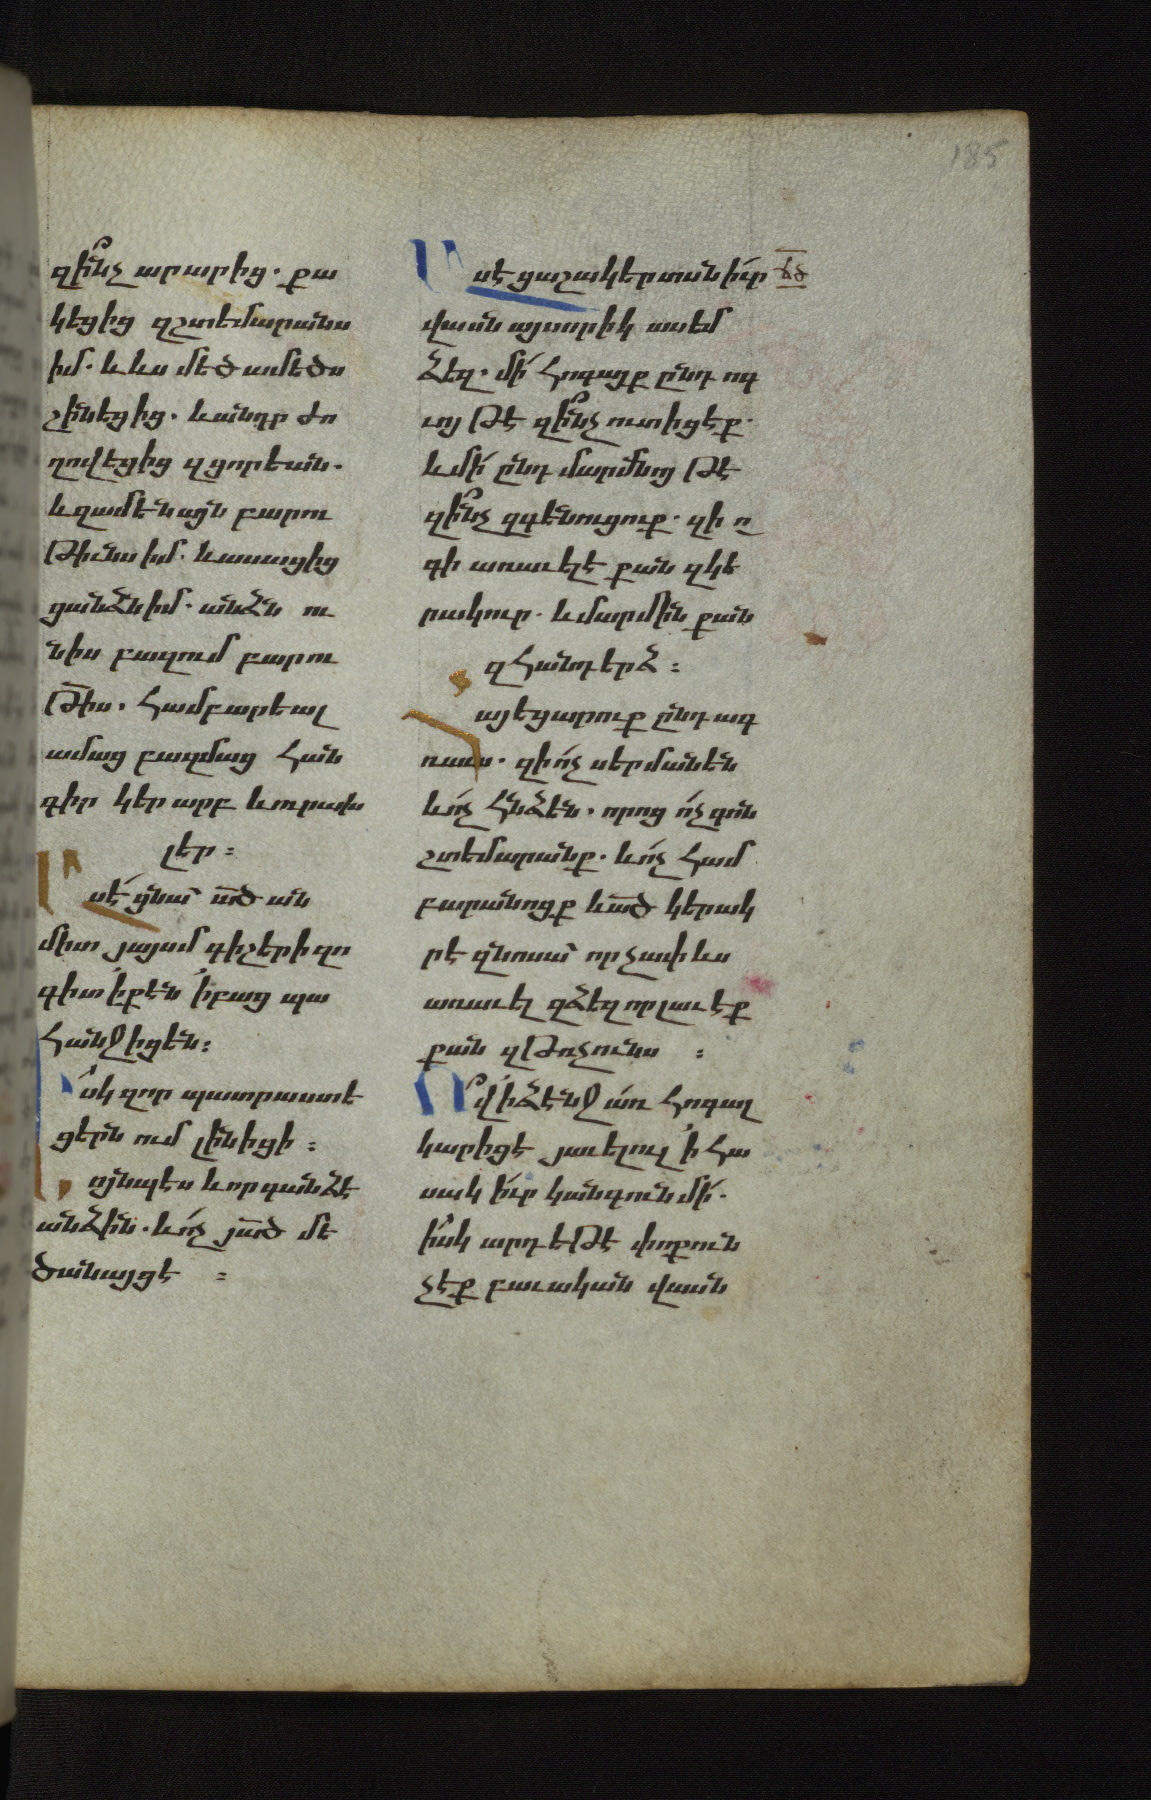 185
զի՞նչ արարից. քա
կեցից զշտեմարանս
իմ. և ևս մեծամեծս
շինեցից. և անդր ժո
ղովեցից զցորեան.
և զամենայն բարու
թիւնս իմ. և ասացից
ցանձն իմ. անձն ու
նիս բազում բարու
թիս. համբարեալ
ամաց բազմաց հան
գիր կեր արբ և ուրախ
լեր ։
Ասէ ցնա ած ան
միտ յայսմ գիշերի զո
գիդ ի քէն ի բաց պա
հանջիցեն ։
Իսկ զոր պատրաստե
ցերն ում լինիցի ։
Սոյնպէս և որ գանձէ
անձին. և ոչ յած մե
ծանայցէ ։
Ասէ ցաշակերտսն իւր ճծ
վասն այսորիկ ասեմ
ձեզ. մի հոգայք ընդ ոգ
ւոյ թէ զի՞նչ ուտիցէք.
և մի ընդ մարմնոյ թէ
զի՞նչ զգենուցուք. զի ո
գի առաւել է քան զկե
րակուր. և մարմին քան
զհանդերձ ։
Հայեցարուք ընդ ագ
ռաւս. զի ոչ սերմանեն
և ոչ հնձեն. որոց ոչ գոն
շտեմարանք. և ոչ համ
բարանոցք և ած կերակ
րէ զնոսա որչափ ևս
առաւել զձեզ որ լաւ էք
քան զթռչունս ։
Ո՞վ ի ձէնջ առ հոգալ
կարիցէ յաւելուլ ի հա
սակ իւր կանգուն մի.
իսկ արդ եթէ փոքուն
չէք բաւական վասն